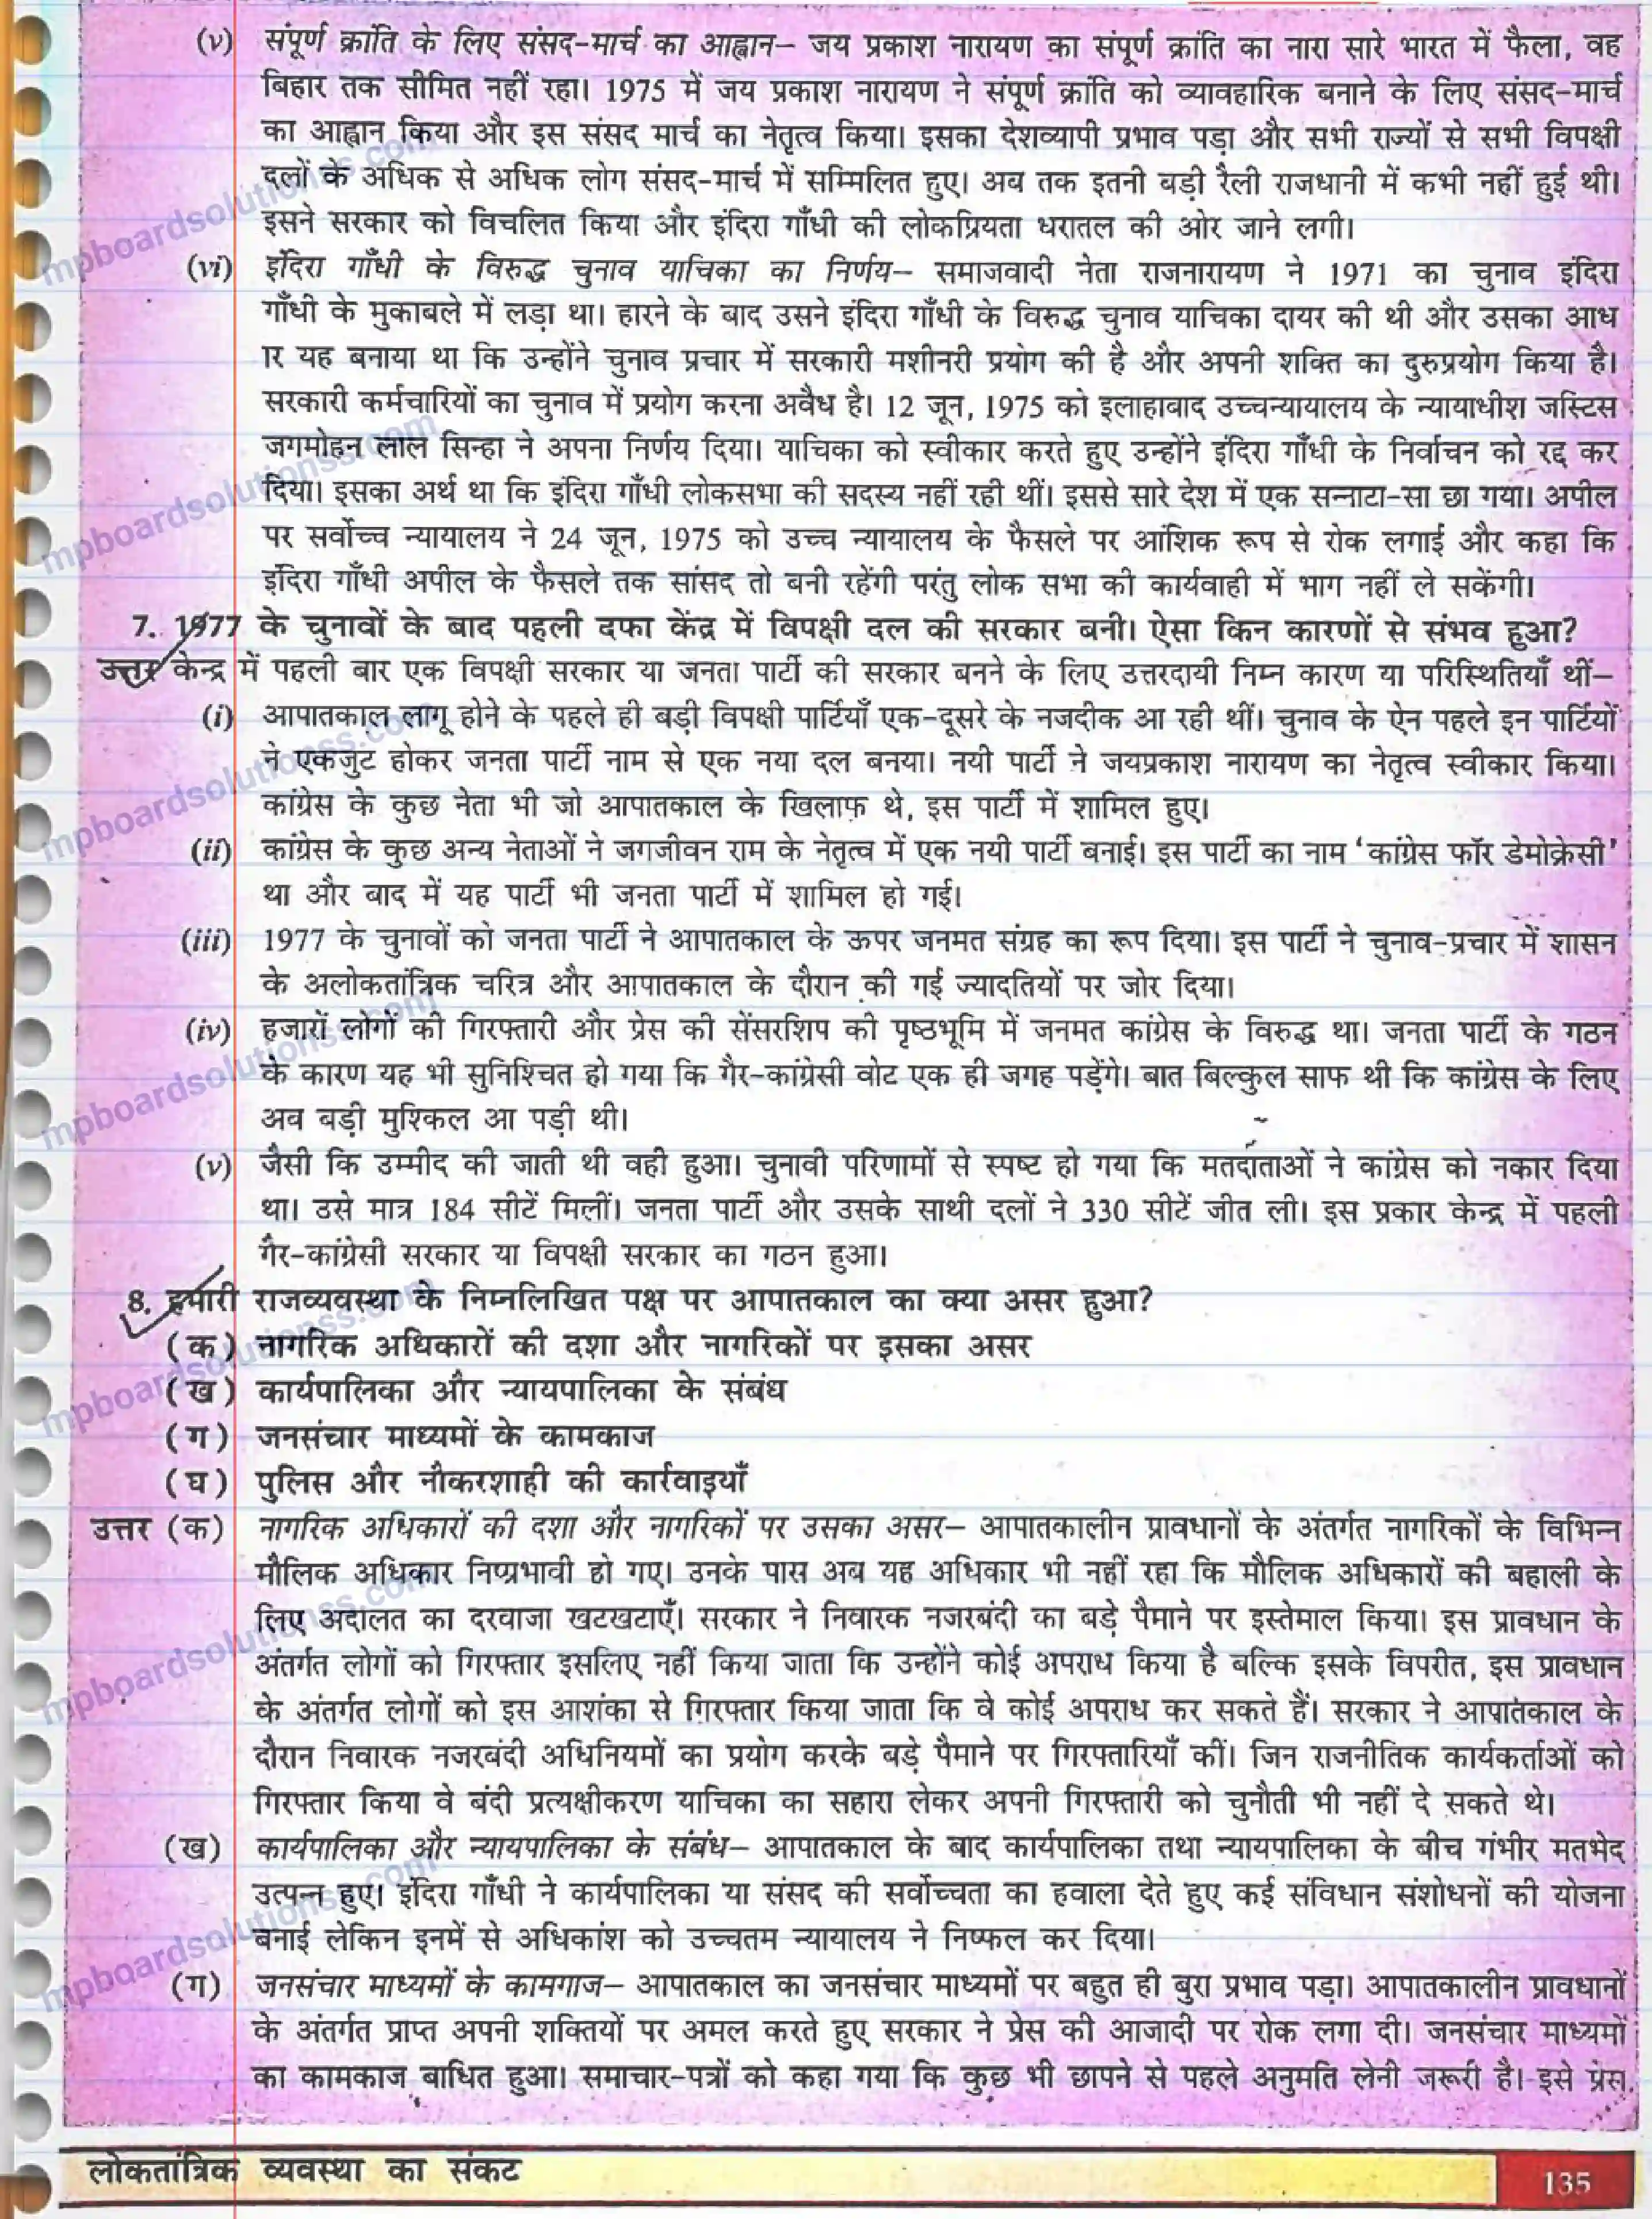 (v) संपूर्ण क्रांति के लिए संसद-मार्च का आह्वान– जय प्रकाश नारायण का संपूर्ण क्रांति का नारा सारे भारत में फैला, वह
बिहार तक सीमित नहीं रहा। 1975 में जय प्रकाश नारायण ने संपूर्ण क्रांति को व्यावहारिक बनाने के लिए संसद-मार्च
का आह्वान किया और इस संसद मार्च का नेतृत्व किया। इसका देशव्यापी प्रभाव पड़ा और सभी राज्यों से सभी विपक्षी
दलों के अधिक से अधिक लोग संसद-मार्च में सम्मिलित हुए। अब तक इतनी बड़ी रैली राजधानी में कभी नहीं हुई थी।
इसने सरकार को विचलित किया और इंदिरा गाँधी की लोकप्रियता धरातल की ओर जाने लगी।
(vi) इंदिरा गाँधी के विरुद्ध चुनाव याचिका का निर्णय– समाजवादी नेता राजनारायण ने 1971 का चुनाव इंदिरा
गाँधी के मुकाबले में लड़ा था। हारने के बाद उसने इंदिरा गाँधी के विरुद्ध चुनाव याचिका दायर की थी और उसका आध
ार यह बनाया था कि उन्होंने चुनाव प्रचार में सरकारी मशीनरी प्रयोग की है और अपनी शक्ति का दुरुप्रयोग किया है।
सरकारी कर्मचारियों का चुनाव में प्रयोग करना अवैध है। 12 जून, 1975 को इलाहाबाद उच्चन्यायालय के न्यायाधीश जस्टिस
जगमोहन लाल सिन्हा ने अपना निर्णय दिया। याचिका को स्वीकार करते हुए उन्होंने इंदिरा गाँधी के निर्वाचन को रद्द कर
दिया। इसका अर्थ था कि इंदिरा गाँधी लोकसभा की सदस्य नहीं रही थीं। इससे सारे देश में एक सन्नाटा-सा छा गया। अपील
पर सर्वोच्च न्यायालय ने 24 जून, 1975 को उच्च न्यायालय के फैसले पर आंशिक रूप से रोक लगाई और कहा कि
इंदिरा गाँधी अपील के फैसले तक सांसद तो बनी रहेंगी परंतु लोक सभा की कार्यवाही में भाग नहीं ले सकेंगी।
7. 1977 के चुनावों के बाद पहली दफा केंद्र में विपक्षी दल की सरकार बनी। ऐसा किन कारणों से संभव हुआ?
उत्तर केन्द्र में पहली बार एक विपक्षी सरकार या जनता पार्टी की सरकार बनने के लिए उत्तरदायी निम्न कारण या परिस्थितियाँ थीं–
(i) आपातकाल लागू होने के पहले ही बड़ी विपक्षी पार्टियाँ एक-दूसरे के नजदीक आ रही थीं। चुनाव के ऐन पहले इन पार्टियों
ने एकजुट होकर जनता पार्टी नाम से एक नया दल बनया। नयी पार्टी ने जयप्रकाश नारायण का नेतृत्व स्वीकार किया।
कांग्रेस के कुछ नेता भी जो आपातकाल के खिलाफ़ थे, इस पार्टी में शामिल हुए।
(ii) कांग्रेस के कुछ अन्य नेताओं ने जगजीवन राम के नेतृत्व में एक नयी पार्टी बनाई। इस पार्टी का नाम ‘कांग्रेस फॉर डेमोक्रेसी’
था और बाद में यह पार्टी भी जनता पार्टी में शामिल हो गई।
(iii) 1977 के चुनावों को जनता पार्टी ने आपातकाल के ऊपर जनमत संग्रह का रूप दिया। इस पार्टी ने चुनाव-प्रचार में शासन
के अलोकतांत्रिक चरित्र और आपातकाल के दौरान की गई ज्यादतियों पर जोर दिया।
(iv) हजारों लोगों की गिरफ्तारी और प्रेस की सेंसरशिप की पृष्ठभूमि में जनमत कांग्रेस के विरुद्ध था। जनता पार्टी के गठन
के कारण यह भी सुनिश्चित हो गया कि गैर-कांग्रेसी वोट एक ही जगह पड़ेंगे। बात बिल्कुल साफ थी कि कांग्रेस के लिए
अब बड़ी मुश्किल आ पड़ी थी।
(v) जैसी कि उम्मीद की जाती थी वही हुआ। चुनावी परिणामों से स्पष्ट हो गया कि मतदाताओं ने कांग्रेस को नकार दिया
था। उसे मात्र 184 सीटें मिलीं। जनता पार्टी और उसके साथी दलों ने 330 सीटें जीत ली। इस प्रकार केन्द्र में पहली
गैर-कांग्रेसी सरकार या विपक्षी सरकार का गठन हुआ।
8. हमारी राजव्यवस्था के निम्नलिखित पक्ष पर आपातकाल का क्या असर हुआ?
(क) नागरिक अधिकारों की दशा और नागरिकों पर इसका असर
(ख) कार्यपालिका और न्यायपालिका के संबंध
(ग) जनसंचार माध्यमों के कामकाज
(घ) पुलिस और नौकरशाही की कार्रवाइयाँ
उत्तर (क) नागरिक अधिकारों की दशा और नागरिकों पर उसका असर– आपातकालीन प्रावधानों के अंतर्गत नागरिकों के विभिन्न
मौलिक अधिकार निष्प्रभावी हो गए। उनके पास अब यह अधिकार भी नहीं रहा कि मौलिक अधिकारों की बहाली के
लिए अदालत का दरवाजा खटखटाएँ। सरकार ने निवारक नजरबंदी का बड़े पैमाने पर इस्तेमाल किया। इस प्रावधान के
अंतर्गत लोगों को गिरफ्तार इसलिए नहीं किया जाता कि उन्होंने कोई अपराध किया है बल्कि इसके विपरीत, इस प्रावधान
के अंतर्गत लोगों को इस आशंका से गिरफ्तार किया जाता कि वे कोई अपराध कर सकते हैं। सरकार ने आपातकाल के
दौरान निवारक नजरबंदी अधिनियमों का प्रयोग करके बड़े पैमाने पर गिरफ्तारियाँ कीं। जिन राजनीतिक कार्यकर्ताओं को
गिरफ्तार किया वे बंदी प्रत्यक्षीकरण याचिका का सहारा लेकर अपनी गिरफ्तारी को चुनौती भी नहीं दे सकते थे।
(ख) कार्यपालिका और न्यायपालिका के संबंध– आपातकाल के बाद कार्यपालिका तथा न्यायपालिका के बीच गंभीर मतभेद
उत्पन्न हुए। इंदिरा गाँधी ने कार्यपालिका या संसद की सर्वोच्चता का हवाला देते हुए कई संविधान संशोधनों की योजना
बनाई लेकिन इनमें से अधिकांश को उच्चतम न्यायालय ने निष्फल कर दिया।
(ग) जनसंचार माध्यमों के कामगाज– आपातकाल का जनसंचार माध्यमों पर बहुत ही बुरा प्रभाव पड़ा। आपातकालीन प्रावधानों
के अंतर्गत प्राप्त अपनी शक्तियों पर अमल करते हुए सरकार ने प्रेस की आजादी पर रोक लगा दी। जनसंचार माध्यमों
का कामकाज बाधित हुआ। समाचार-पत्रों को कहा गया कि कुछ भी छापने से पहले अनुमति लेनी जरूरी है। इसे प्रेस
लोकतांत्रिक व्यवस्था का संकट
135
mpboardsolutionss.com
mpboardsolutionss.com
mpboardsolutionss.com
mpboardsolutionss.com
mpboardsolutionss.com
mpboardsolutionss.com
mpboardsolutionss.com